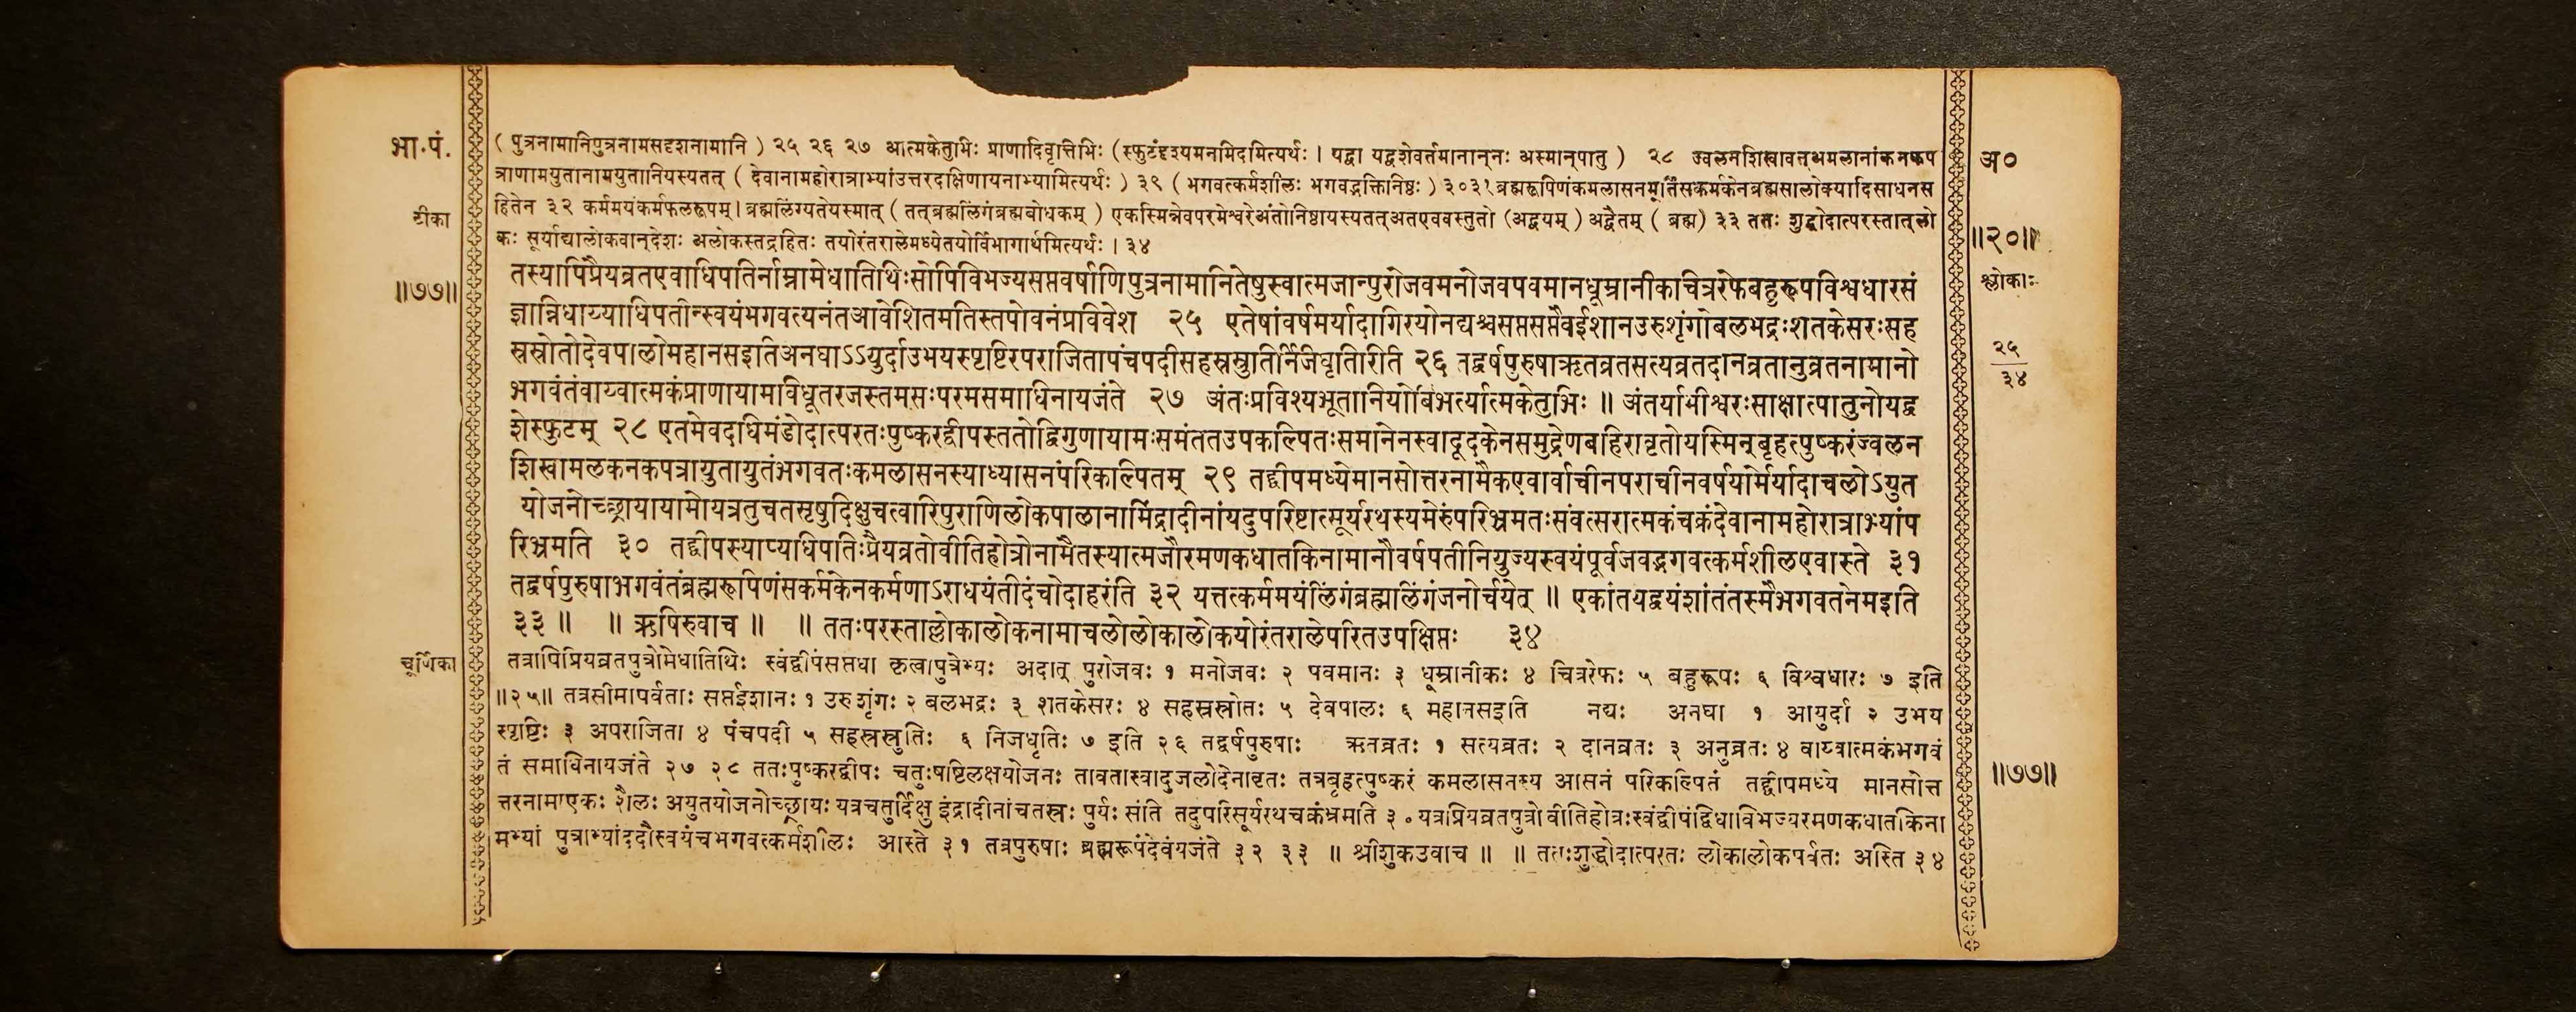 भा.पं.
( पुत्रनामानिपुत्रनामसदृशनामानि ) २५ २६ २७ आत्मकेतुभिः प्राणादिवृत्तिभिः (स्फुटंदृश्यमनमिदमित्यर्थः । यद्वा यद्वशेवर्तमानान्नः अस्मान्पातु ) २८ ज्वलनशिखावत्अमलानांकनकप
अ०
त्राणामयुतानामयुतानियस्यतत् ( देवानामहोरात्राभ्यांउत्तरदक्षिणायनाभ्यामित्यर्थः ) ३९ ( भगवत्कर्मशीलः भगवद्भक्तिनिष्ठः ) ३०३१ ब्रह्मरूपिणंकमलासनमूर्तिंसकर्मकेनब्रह्मसालोक्यादिसाधनस
टीका
हितेन ३२ कर्ममयंकर्मफलरूपम्। ब्रह्मलिंग्यतेयस्मात् ( तत्ब्रह्मलिंगंब्रह्मबोधकम् ) एकस्मिन्नेवपरमेश्वरेअंतोनिष्ठायस्यतत्अतएववस्तुतो (अद्वयम् ) अद्वैतम् ( ब्रह्म) ३३ ततः शुद्धोदात्परस्तात्लो
॥२०॥
कः सूर्याद्यालोकवान्देशः अलोकस्तद्रहितः तयोरंतरालेमध्येतयोर्विभागार्थमित्यर्थः । ३४
॥७७॥
तस्यापिप्रैयव्रतएवाधिपतिर्नाम्नामेधातिथिःसोपिविभज्यसप्तवर्षाणिपुत्रनामानितेषुस्वात्मजान्पुरोजवमनोजवपवमानधूम्रानीकचित्ररेफबहुरूपविश्वधारसं
श्लोकाः
ज्ञान्निधाय्याधिपतीन्स्वयंभगवत्यनंतआवेशितमतिस्तपोवनंप्रविवेश २५ एतेषांवर्षमर्यादागिरयोनद्यश्चसप्तसप्तैवईशानउरुशृंगोबलभद्रःशतकेसरःसह
स्रस्रोतोदेवपालोमहानसइतिअनघाऽऽयुर्दाउभयस्पृष्टिरपराजितापंचपदीसहस्रस्रुतिर्निजधृतिरिति २६ तद्वर्षपुरुषाऋतव्रतसत्यव्रतदानव्रतानुव्रतनामानो
२५
३४
भगवंतंवाय्वात्मकंप्राणायामविधूतरजस्तमसःपरमसमाधिनायजंते २७ अंतःप्रविश्यभूतानियोबिभर्त्यात्मकेतुभिः ॥ अंतर्यामीश्वरःसाक्षात्पातुनोयद्व
शेस्फुटम् २८ एतमेवदधिमंडोदात्परतःपुष्करद्वीपस्ततोद्विगुणायामःसमंततउपकल्पितःसमानेनस्वादूदकेनसमुद्रेणबहिरावृतोयस्मिन्बृहत्पुष्करंज्वलन
शिखामलकनकपत्रायुतायुतंभगवतःकमलासनस्याध्यासनंपरिकल्पितम् २९ तद्वीपमध्येमानसोत्तरनामैकएवार्वाचीनपराचीनवर्षयोर्मर्यादाचलोऽयुत
योजनोच्छ्रायायामोयत्रतुचतसृषुदिक्षुचत्वारिपुराणिलोकपालानामिंद्रादीनांयदुपरिष्टात्सूर्यरथस्यमेरुंपरिभ्रमतःसंवत्सरात्मकंचक्रंदेवानामहोरात्राभ्यांप
रिभ्रमति ३० तद्वीपस्याप्यधिपतिःप्रैयव्रतोवीतिहोत्रोनामैतस्यात्मजौरमणकधातकिनामानौवर्षपतीनियुज्यस्वयंपूर्वजवद्भगवत्कर्मशीलएवास्ते ३१
तद्वर्षपुरुषाभगवंतंब्रह्मरूपिणंसकर्मकेनकर्मणाऽराधयंतीदंचोदाहरंति ३२ यत्तत्कर्ममयंलिंगंब्रह्मलिंगंजनोर्चयेत् ॥ एकांतयद्वयंशांतंतस्मैभगवतेनमइति
३३ ॥ ॥ ऋषिरुवाच ॥ ॥ ततःपरस्ताल्लोकालोकनामाचलोलोकालोकयोरंतरालेपरितउपक्षिप्तः ३४
चूर्णिका
तत्रापिप्रियव्रतपुत्रोमेधातिथिः स्वंद्वीपंसप्तधा कृत्वापुत्रेभ्यः अदात् पुरोजवः १ मनोजवः २ पवमानः ३ धूम्रानीकः ४ चित्ररेफः ५ बहुरूपः ६ विश्वधारः ७ इति
॥२५॥ तत्रसीमापर्वताः सप्तईशानः १ उरुशृंगः २ बलभद्रः ३ शतकेसरः ४ सहस्रस्रोतः ५ देवपालः ६ महानसइति नद्यः अनघा १ आयुर्दा २ उभय
स्पृष्टिः ३ अपराजिता ४ पंचपदी ५ सहस्रस्रुतिः ६ निजधृतिः ७ इति २६ तद्वर्षपुरुषाः ऋतव्रतः १ सत्यव्रतः २ दानव्रतः ३ अनुव्रतः ४ वाय्वात्मकंभगवं
तं समाधिनायजंते २७ २८ ततःपुष्करद्वीपः चतुःषष्टिलक्षयोजनः तावतास्वादुजलोदेनावृतः तत्रबृहत्पुष्करं कमलासनस्य आसनं परिकल्पितं तद्वीपमध्ये मानसोत्त
॥७७॥
त्तरनामाएकः शैलः अयुतयोजनोच्छ्रायः यत्रचतुर्दिक्षु इंद्रादीनांचतस्रः पुर्यः संति तदुपरिसूर्यरथचक्रंभ्रमति ३० यत्रप्रियव्रतपुत्रो वीतिहोत्रःस्वंद्वीपंद्विधाविभज्यरमणकधातकिना
मभ्यां पुत्राभ्यांददौस्वयंचभगवत्कर्मशीलः आस्ते ३१ तत्रपुरुषाः ब्रह्मरूपंदेवंयजंते ३२ ३३ ॥ श्रीशुकउवाच ॥ ॥ ततःशुद्धोदात्परतः लोकालोकपर्वतः अस्ति ३४